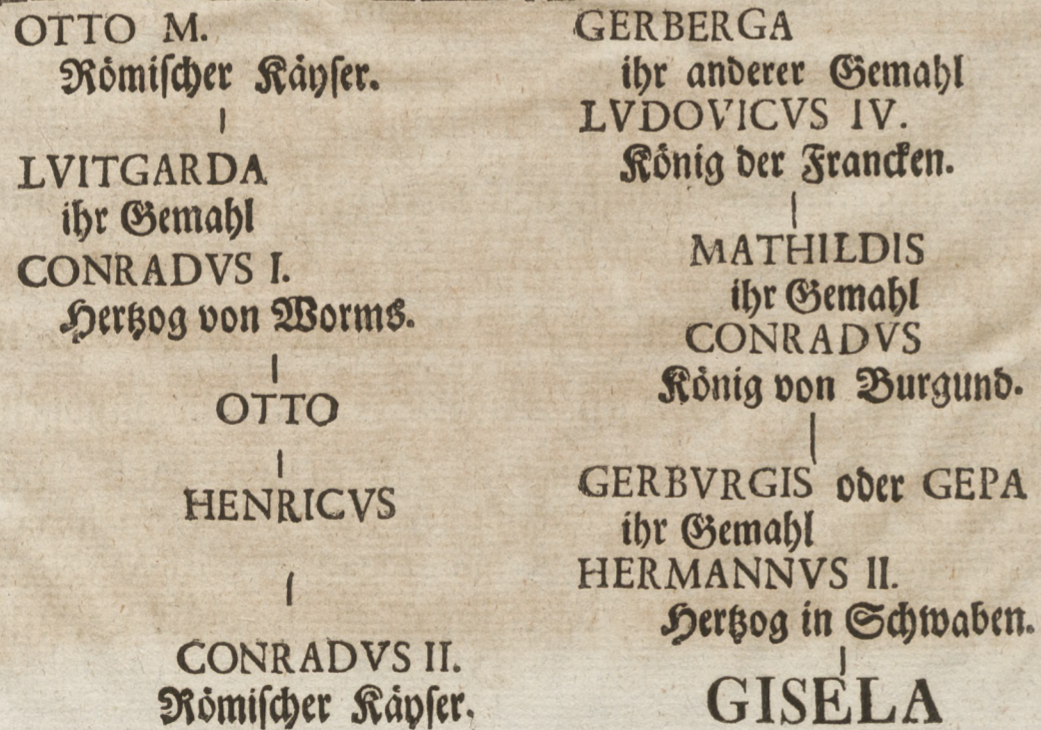 OTTO M.
Römiſcher Käyſer.
LVITGARDA
ihr Gemahl
CONRADVS I.
Hertzog von Worms.
OTTO
HENRICVS
CONRADVS II.
Römiſcher Käyſer.
GERBERGA
ihr anderer Gemahl
LVDOVICVS IV.
König der Francken.
MATHILDIS
ihr Gemahl
CONRADVS
König von Burgund.
GERBVRGIS oder GEPA
ihr Gemahl
HERMANNVS II.
Hertzog in Schwaben.
GISELA